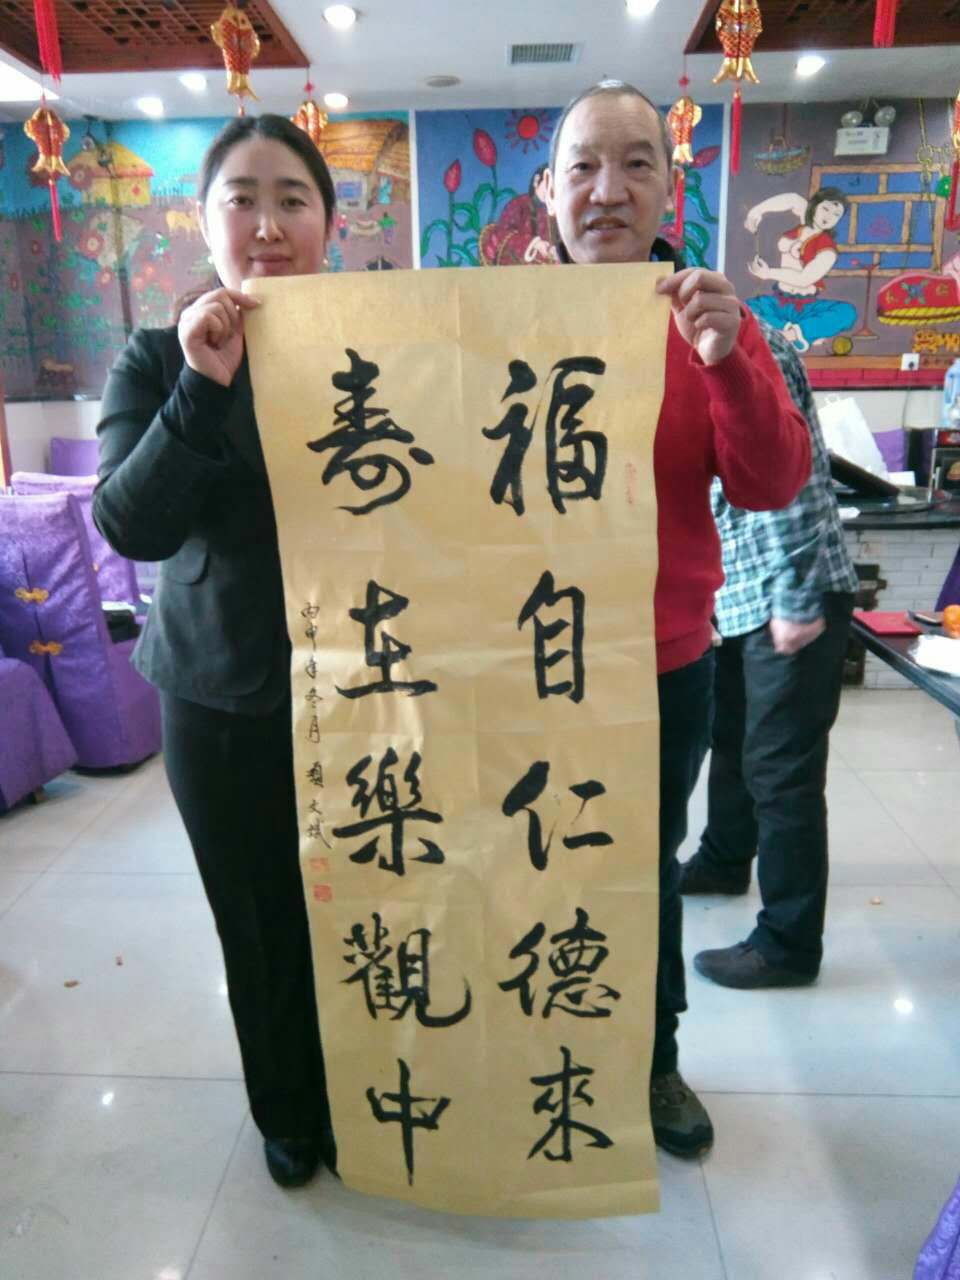 福自仁德來
壽在樂觀中
丙申年冬月